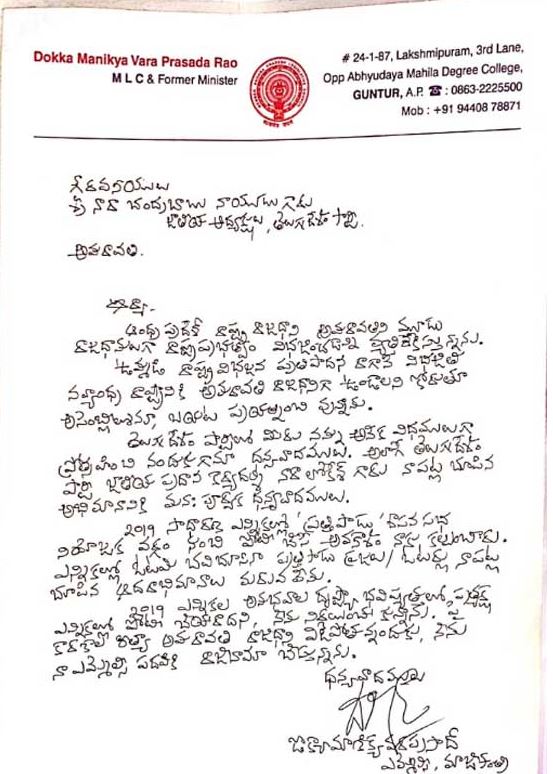 Dokka Manikya Vara Prasada Rao
M L C & Former Minister
# 24-1-87, Lakshmipuram, 3rd Lane,
Opp Abhyudaya Mahila Degree College,
GUNTUR, A.P. ☎ : 0863-2225500
Mob : +91 94408 78871
గౌరవనీయులు
శ్రీ నారా చంద్రబాబు నాయుడు గారు
జాతీయ అధ్యక్షులు, తెలుగుదేశం పార్టీ.
అమరావతి.
ఆర్యా.
ఆంధ్ర ప్రదేశ్ రాష్ట్ర రాజధాని అమరావతిని మూడు
రాజధానులుగా రాష్ట్రప్రభుత్వం విభజించడాన్ని వ్యతిరేకిస్తున్నాను.
ఉమ్మడి రాష్ట్ర విభజన ప్రతిపాదన రాగానే విభజిత
నవ్యాంధ్ర రాష్ట్రానికి అమరావతి రాజధానిగా ఉండాలని కోరుతూ
అసెంబ్లీలోనూ, బయట ప్రయత్నించి వున్నాను.
తెలుగుదేశం పార్టీలో మీరు నన్ను అనేక విధములుగా
ప్రోత్సహించి నందుకుగాను ధన్యవాదములు. అలాగే తెలుగుదేశం
పార్టీ జాతీయ ప్రధాన కార్యదర్శి నారా లోకేశ్ గారు నాపట్ల చూపిన
అభిమానానికి మనః పూర్వక ధన్యవాదములు.
2019 సాధారణ ఎన్నికల్లో 'ప్రత్తిపాడు' శాసన సభ
నియోజక వర్గం నుంచి పోటీ చేసే అవకాశం నాకు కల్పించారు.
ఎన్నికల్లో ఓటమి చవిచూసినా ప్రత్తిపాడు ప్రజలు/ ఓటర్లు నాపట్ల
చూపిన ఆదరాభిమానాలు మరువ లేను.
2019 ఎన్నికల అనుభవాల దృష్ట్యా భవిష్యత్తులో ప్రత్యక్ష
ఎన్నికల్లో పోటీ చేయరాదని, నేను నిర్ణయించు కున్నాను. పై
కారణాల రీత్యా అమరావతి రాజధాని విడిపోతున్నందుకు, నేను
నా ఎమ్మెల్సీ పదవికి రాజీనామా చేస్తున్నాను.
ధన్యవాదములు
డొక్కా మాణిక్యవరప్రసాద్
ఎమ్మెల్సీ, మాజీమంత్రి